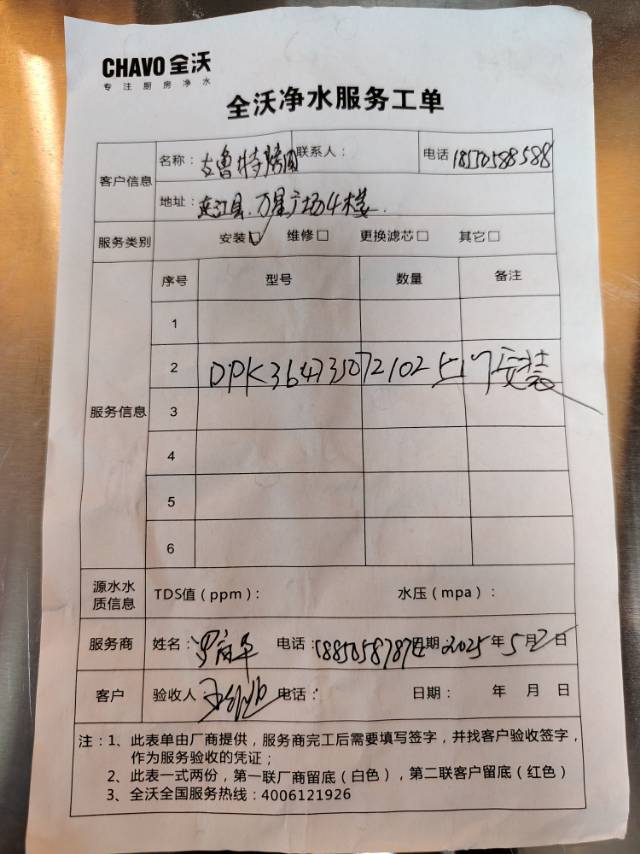 CHAVO 全沃
专注厨房净水
全沃净水服务工单
客户信息 名称： 联系人： 电话 18570588588
地址：连江县.万星广场4楼.
服务类别 安装☑ 维修□ 更换滤芯□ 其它□
序号 型号 数量 备注
1
2 DPK364735072102 上门安装
服务信息 3
4
5
6
源水水质信息 TDS值（ppm）： 水压（mpa）：
服务商 姓名： 电话： 日期 2025年5月2日
客户 验收人 电话： 日期： 年 月 日
注：1、此表单由厂商提供，服务商完工后需要填写签字，并找客户验收签字，
作为服务验收的凭证；
2、此表一式两份，第一联厂商留底（白色），第二联客户留底（红色）
3、全沃全国服务热线：4006121926